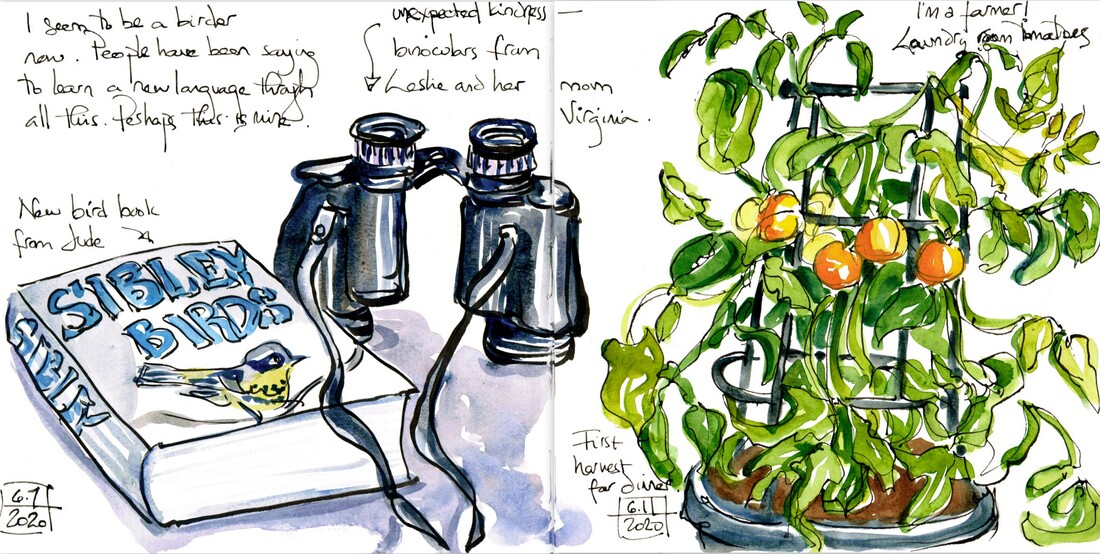 I seem to be a birder
now. People have been saying
to learn a new language through
all this. Perhaps this is mine.
unexpected kindness —
binoculars from
Leslie and her
mom
Virginia.
New bird book
from Jude
SIBLEY
BIRDS
SIBLE
6.7
2020
I'm a farmer!
Laundry room tomatoes
First
harvest
for dinner
6.1
2020